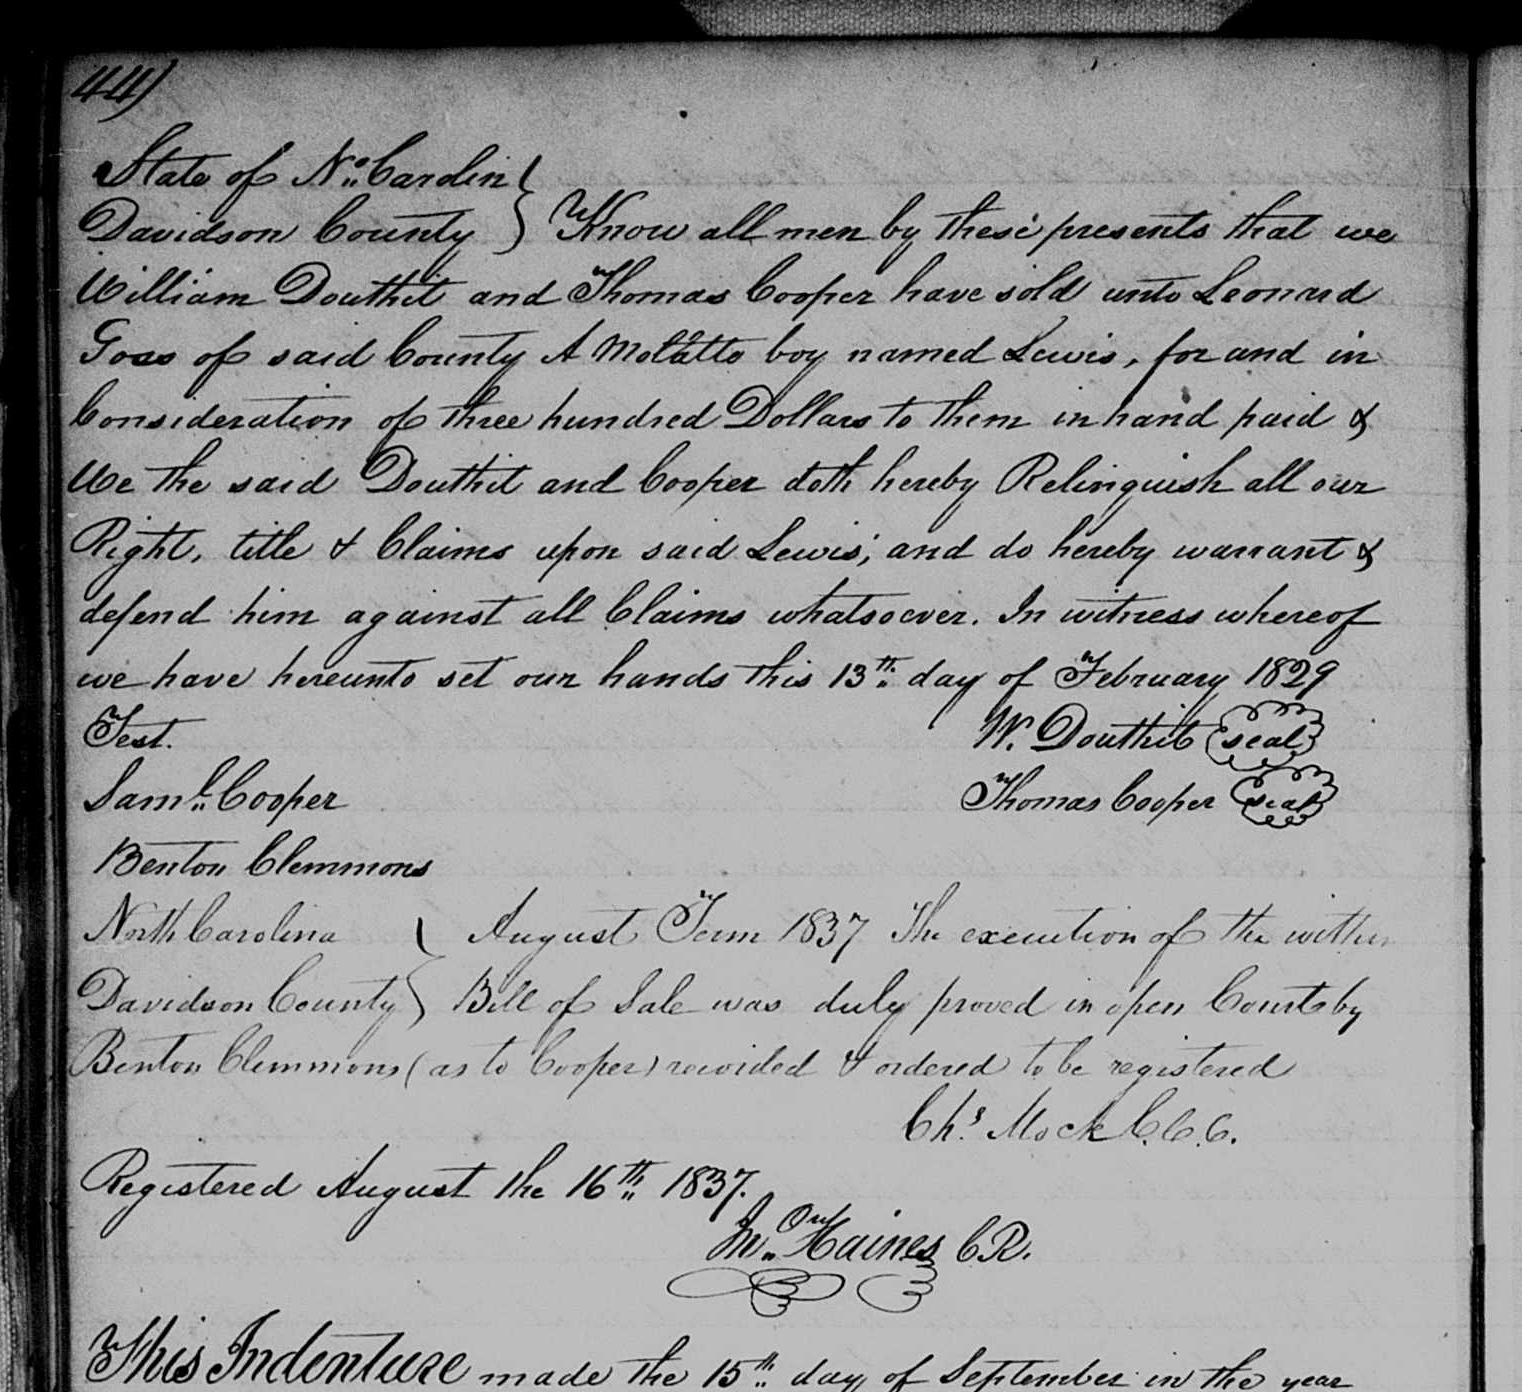 44)
State of No. Carolin
Davidson County } Know all men by these presents that we
William Douthit and Thomas Cooper have sold unto Leonard
Goss of said County A Molatto boy named Lewis, for and in
Consideration of three hundred Dollars to them in hand paid &
We the said Douthit and Cooper doth hereby Relinquish all our
Right, title & Claims upon said Lewis, and do hereby warrant &
defend him against all Claims whatsoever. In witness whereof
we have hereunto set our hands this 13th day of February 1829
Test. W. Douthit (seal)
Saml. Cooper Thomas Cooper (seal)
Benton Clemmons
North Carolina } August Term 1837 The execution of the within
Davidson County } Bill of Sale was duly proved in open Court by
Benton Clemmons (as to Cooper) recorded & ordered to be registered
Chs. Mock C.C.C.
Registered August the 16th 1837.
Jno. Haines CR.
This Indenture made the 15th day of September in the year